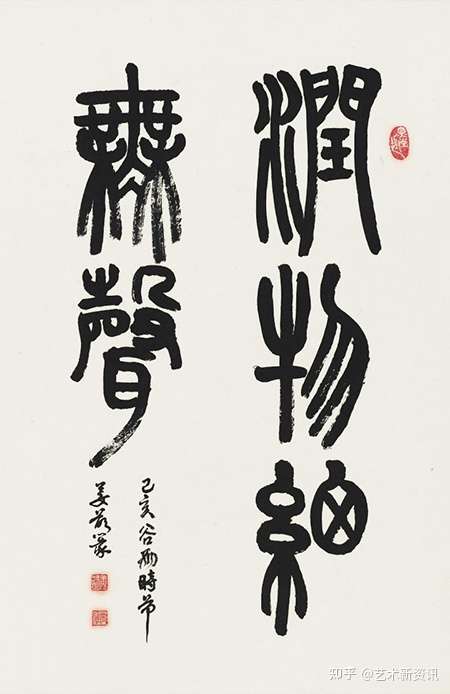 潤物細
無聲
己亥谷雨時節
知乎 @艺术新资讯